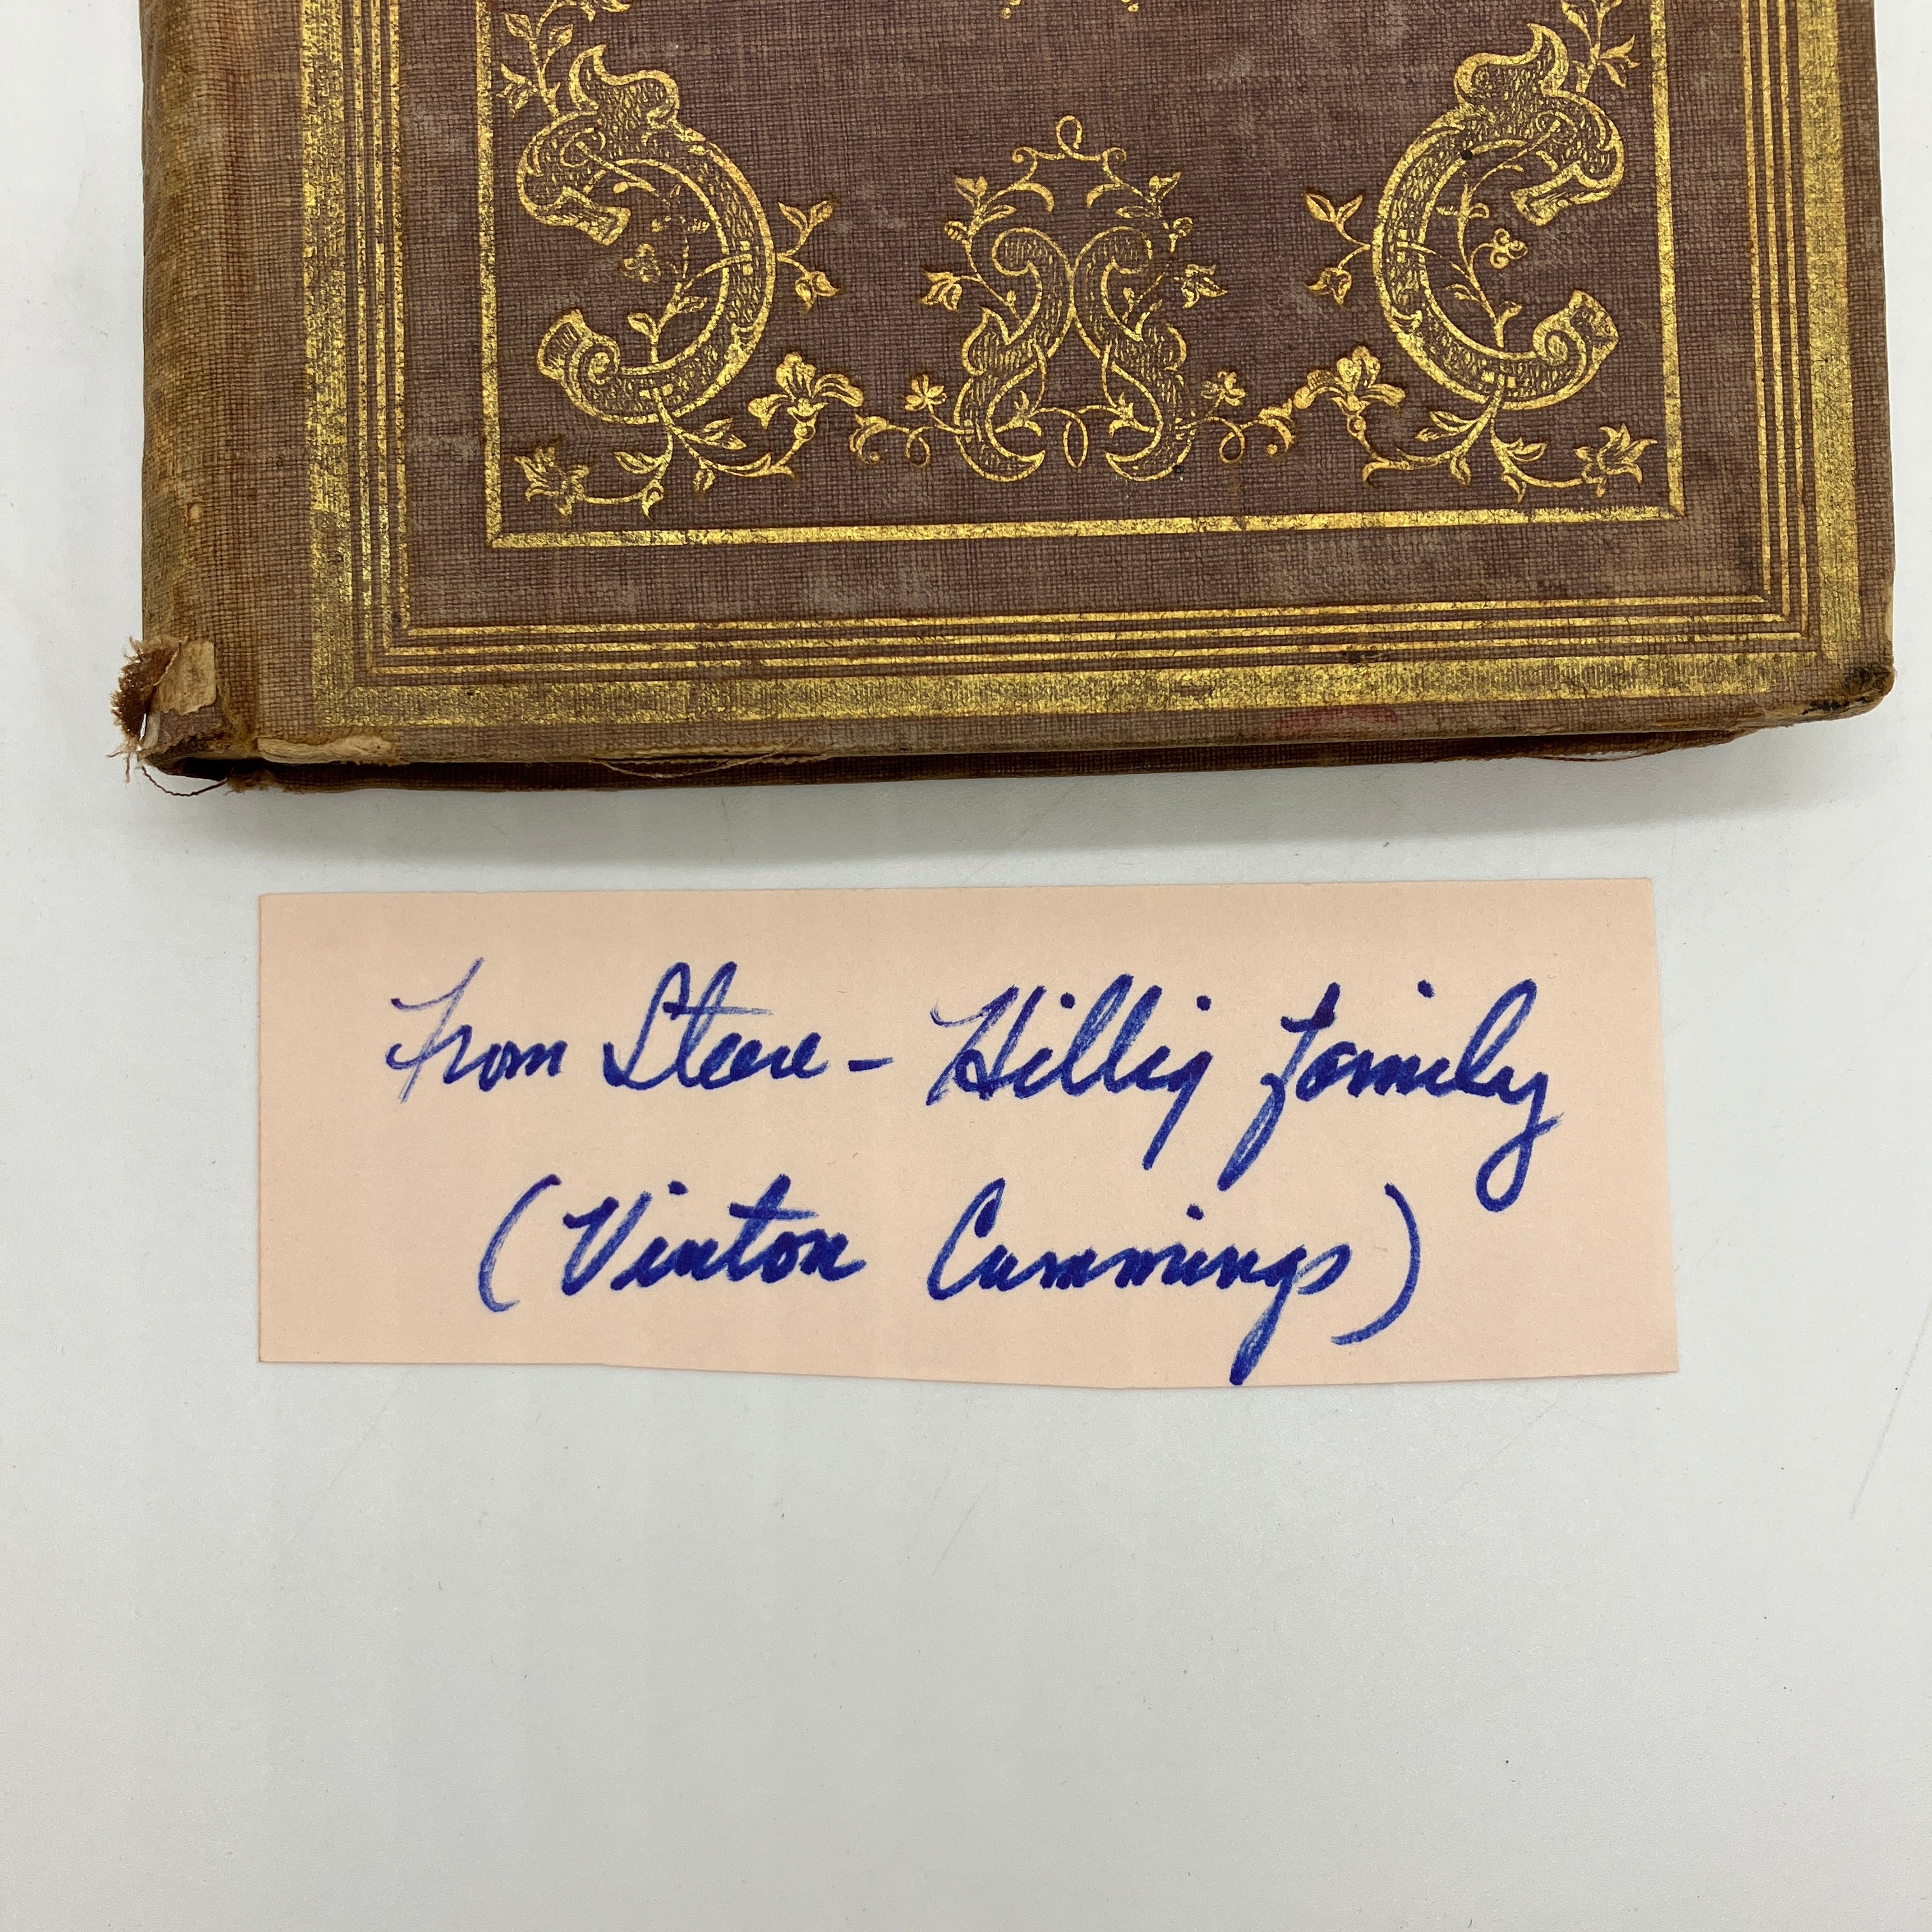 From Steere - Hillig family
(Vinton Cummings)